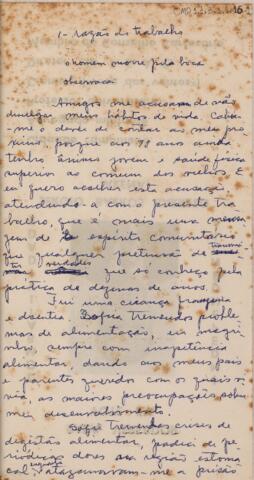 1- razão do trabalho
o homem morre pela boca
observaca
Amigos me acusam de não
divulgar meus hábitos de vida. Cabe-
me o dever de contar ao meu pro
ximo porque aos 73 anos ainda
tenho ânimo jovem e saude física
superior ao comum dos velhos. E
eu quero acolher esta acusaçã
atendendo-a com o presente tra
balho, que é mais uma
gem de espírito comunitario
que qualquer pretensa de
que só conheço pela
pratica de dezenas de anos.
Fui uma criança franzina
e doentia. Sofria tremendos proble
mas de alimentação, era magri
nho, sempre com inapetência
alimentar, dando aos meus pais
e parentes queridos com os quais vi
via, as maiores preocupações sobre
meu desenvolvimento.
Sofri tremendas crises de
digestão alimentar, padeci de pe
riódicas dores na região estoma
cal, atazanavam-me a prisão